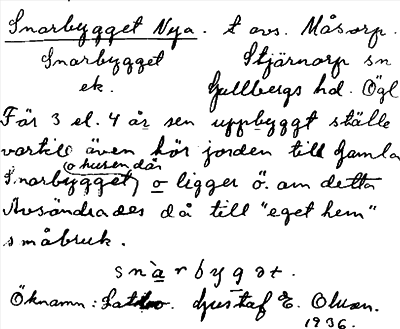 Snarbygget Nya. t. avs. Måsorp.
Snarbygget Stjärnorp sn
ek. Gullbergs hd. Ögl
För 3 el. 4 år sen uppbyggt ställe
vartill även hör jorden till Gamla
o husen där
Snarbygget, o ligger ö. om detta
Avsöndrades då till "eget hem"
småbruk.
snàrbygət.
Öknamn: Gustaf E. Olsson.
1936.